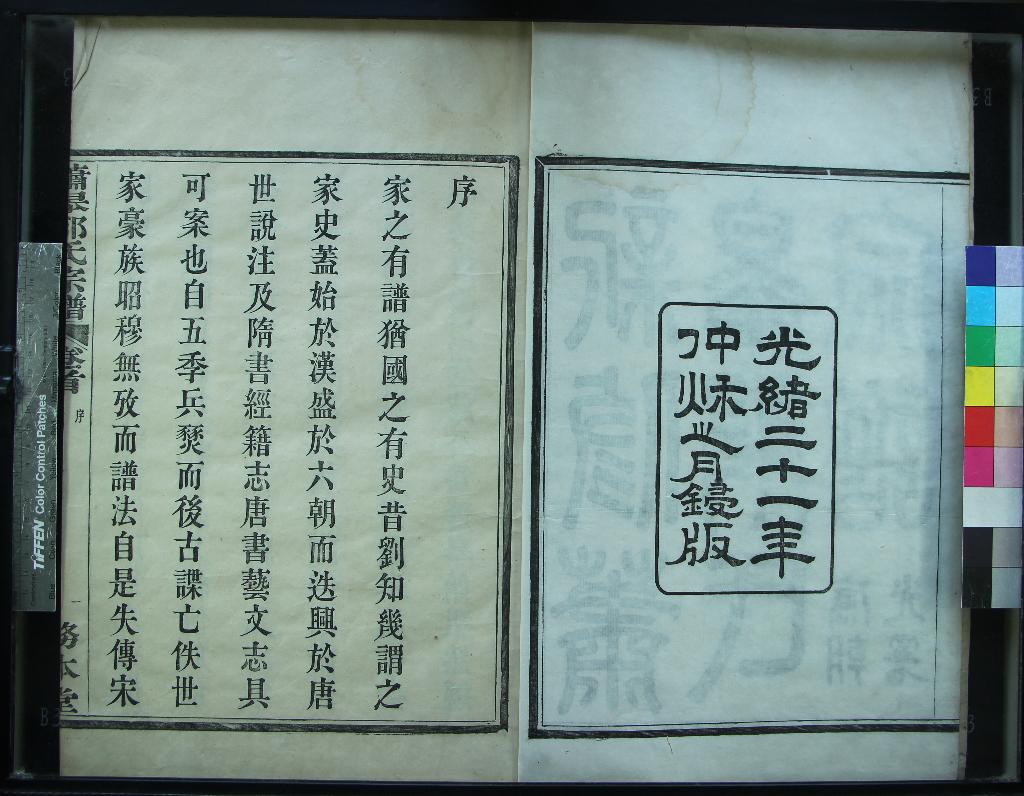 光緒二十一年
仲秌之月鋟版
序
家之有譜猶國之有史昔劉知幾謂之
家史蓋始於漢盛於六朝而迭興於唐
世說注及隋書經籍志唐書藝文志具
可案也自五季兵燹而後古諜亡佚世
家豪族昭穆無攷而譜法自是失傳宋
氏宗譜
卷首
序
一
務本堂
TIFFEN Color Control Patches